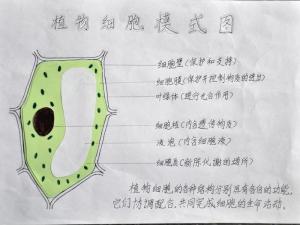 植物细胞模式图
细胞壁(保护和支持)
细胞膜(保护并控制物质的进出)
叶绿体(进行光合作用)
细胞核(内含遗传物质)
液泡(内含细胞液)
细胞质(新陈代谢的场所)
植物细胞的各种结构分别具有各自的功能,
它们协调配合,共同完成细胞的生命活动.